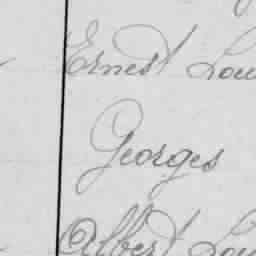 Ernest Lou
Georges
Albert Lou